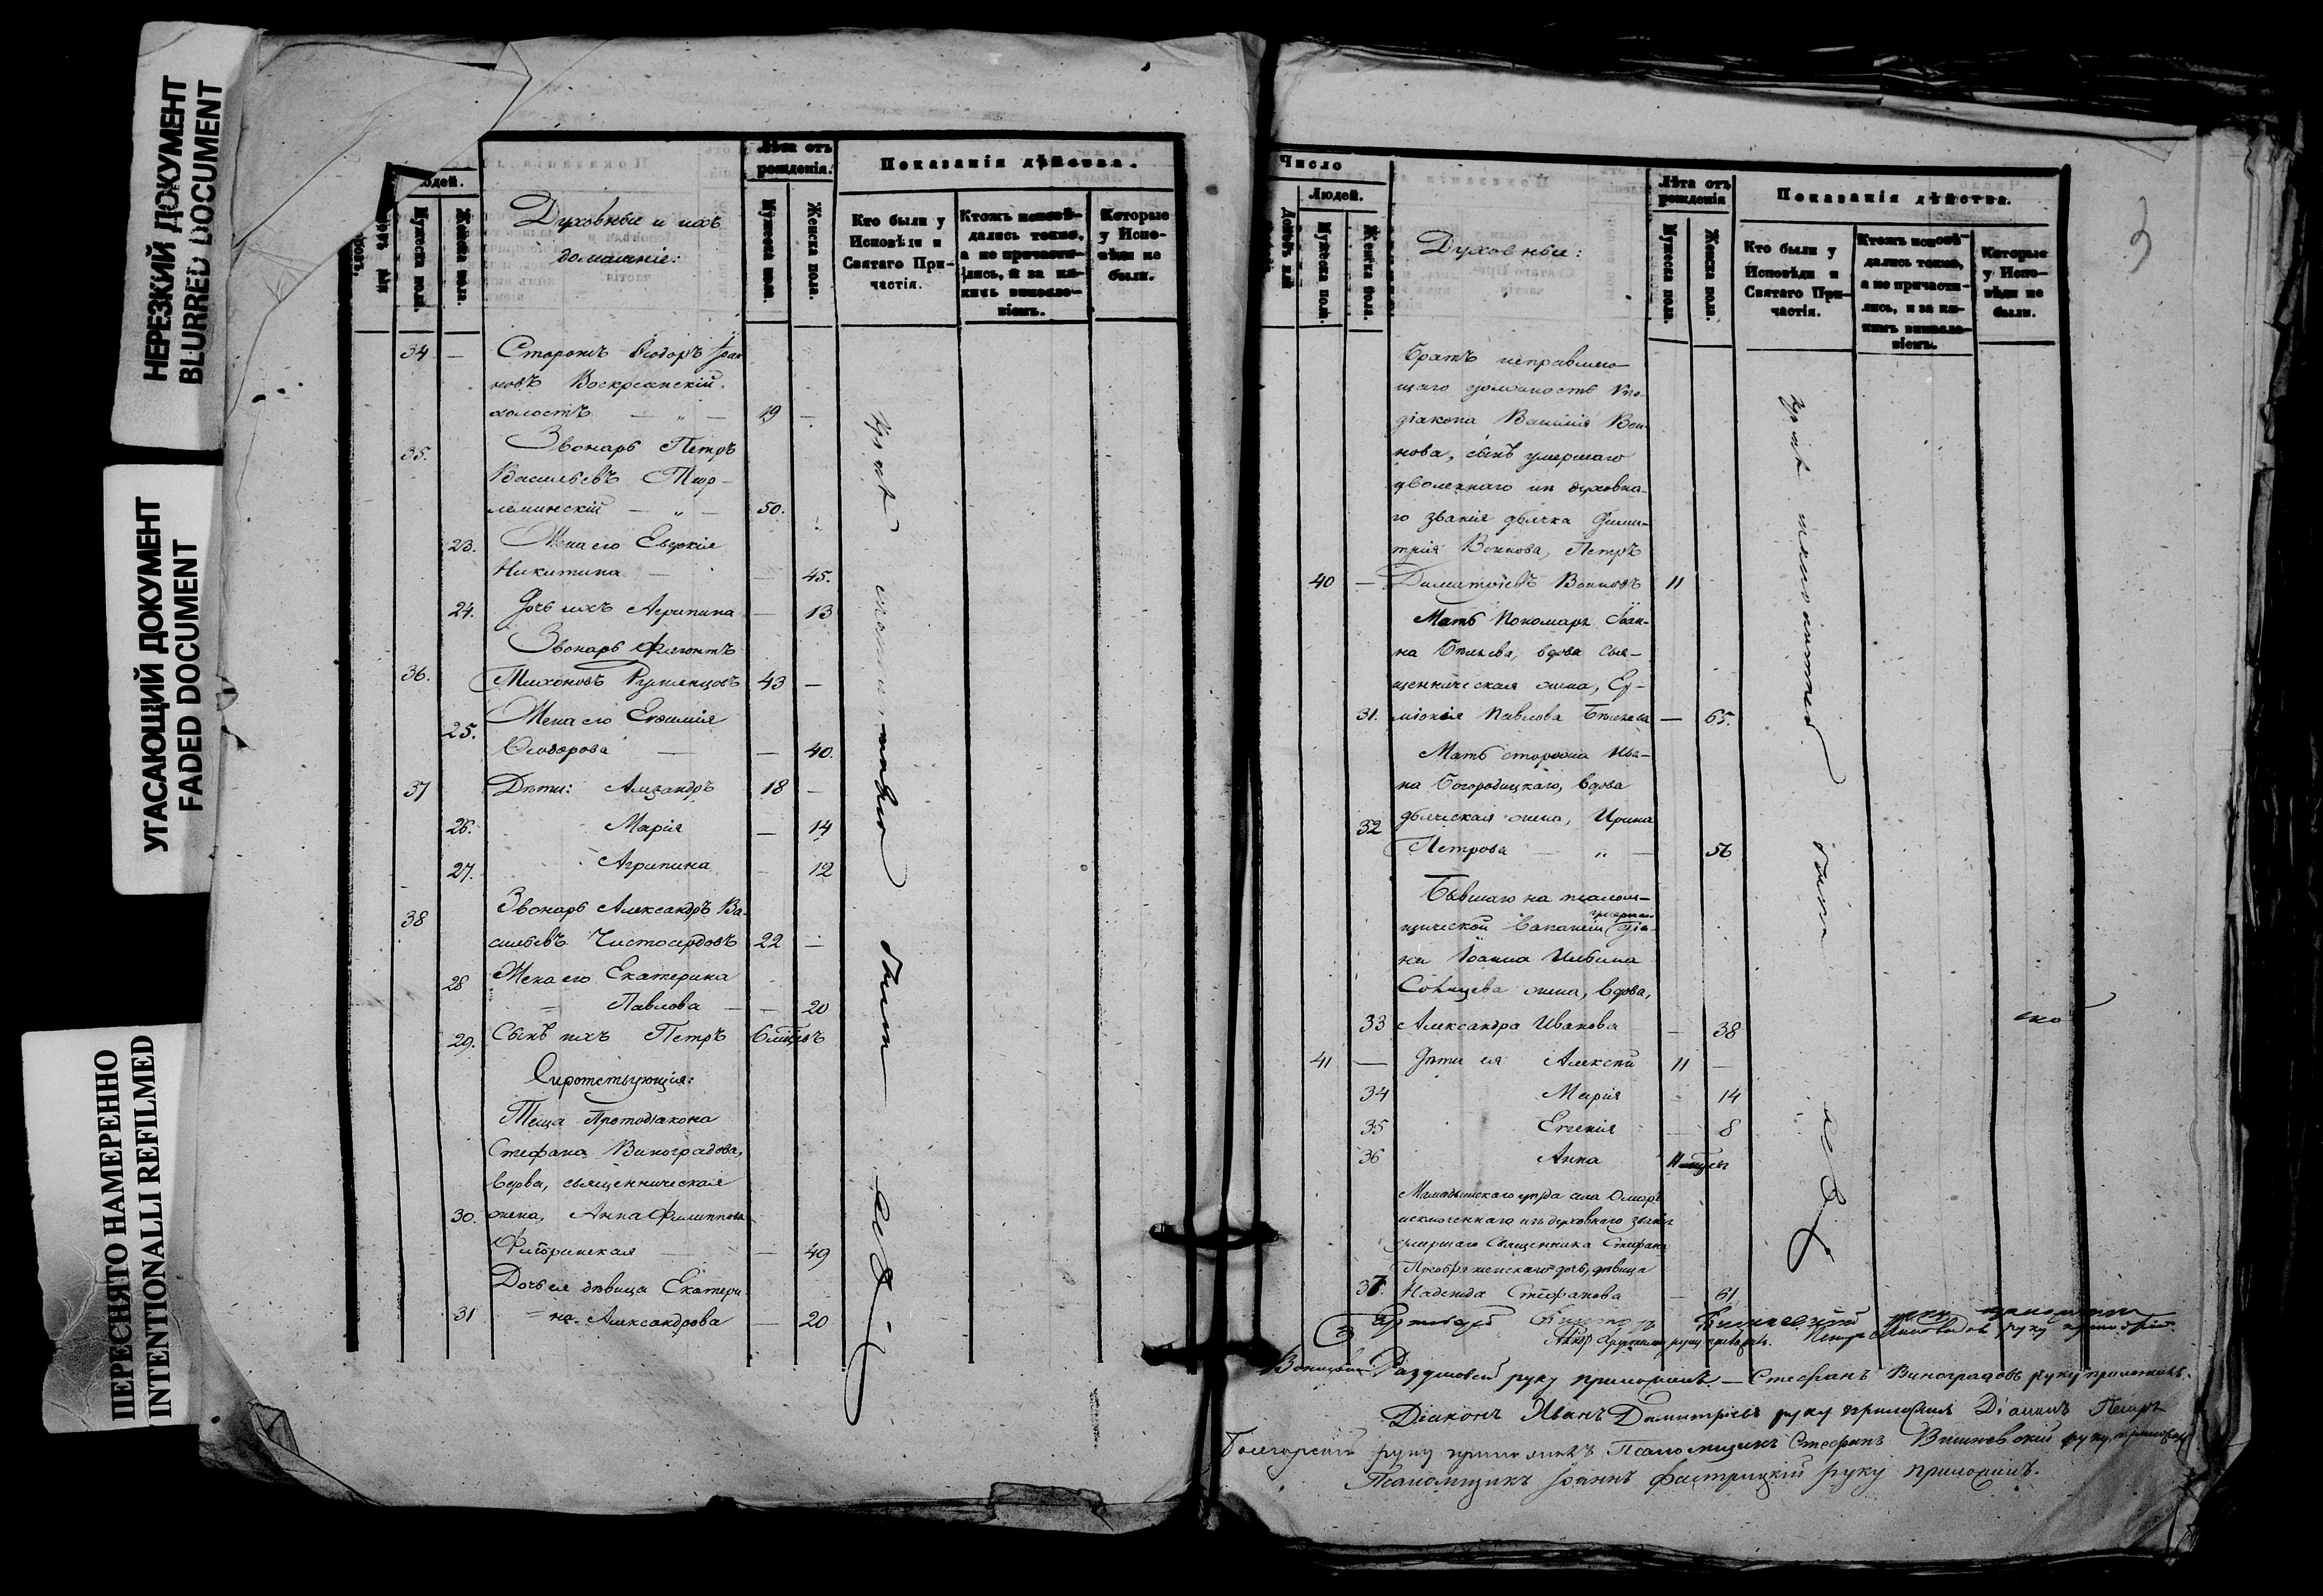 НЕРЕЗКИЙ ДОКУМЕНТ
BLURRED DOCUMENT
УГАСАЮЩИЙ ДОКУМЕНТ
FADED DOCUMENT
ПЕРЕСНЯТО НАМЕРЕННО
INTENTIONALLI REFILMED
Людей.
Мужеска пола.
Женска пола.
Духовные и ихъ
домашніе:
Лѣта отъ
рожденія.
Мужеска пола.
Женска пола.
Показанія дѣйства.
Кто были у
Исповѣди и
Святаго При-
частія.
Ктожъ исповѣ-
дались токмо,
а не причасти-
лись, и за ка-
кимъ винослο-
віемъ.
Которые
у Испо-
вѣди не
были.
34 — Сторожъ Ѳеодоръ Іоан
новъ Воскресенскій,
холостъ — „ — 19 —
35. Звонарь Петръ
Васильевъ
— „ — 50.
23. Жена его Евдокія
Никитина — 45.
24. Дочь ихъ Агрипина — 13
Звонарь Филонтъ
36. Тихоновъ Румянцовъ 43 —
25. Жена его Евѳимія
Ѳеодорова — — 40.
37 Дѣти: Алезандръ 18 —
26. Марія — 14
27. Агрипина — 12
38 Звонарь Александръ Ва-
сильевъ Чистосердовъ 22 —
28 Жена его Екатерина
Павлова — — 20
29. Сынъ ихъ Петръ 6 мѣсцовъ
Сиротствующія:
Теща Протодіакона
Стефана Виноградова,
вдова, священническая
30. жена, Анна Филиппова
— 49
Дочь ея дѣвица Екатери
31 = на Александрова — 20
были
Число
Людей.
Мужеска пола.
Женска пола.
Духовные:
Лѣта отъ
рожденія
Мужеска пола.
Женска пола.
Показанія дѣйства.
Кто были у
Исповѣди и
Святаго При-
частія.
Ктожъ исповѣ-
дались токмо,
а не причасти-
лись, и за ка-
кимъ винослο-
віемъ.
Которые
у Испо-
вѣди не
были.
3
Братъ исправляю-
щаго должность Ѵпо-
діакона Василія Вои-
нова, сынъ умершаго
уволеннаго изъ духовна-
го званія дьячка Дими-
трія Воинова, Петръ
40 — Димитріевъ Воиновъ 11
Мать Пономаря Іоан-
на Бѣляева, вдова свя-
щенническая жена, Ев-
31. Павлова Бѣляева — 65.
Мать сторожа Ива-
на Богородицкаго, вдова
32 дьяческая жена, Ирина
Петрова — „ — 56
Бывшаго на псалом-
щической вакансіи умершаго діа-
на Іоанна Ильина
Солнцева жена, вдова,
33 Александра Иванова — 38
41 — Дѣти ея Алексѣй 11 —
34 Марія — 14
35 Евгенія — 8
36 Анна 11 мѣсцевъ
Мамадышскаго уѣзда села Омаръ
исключеннаго изъ духовнаго званія
умершаго Священника Стефана
Преображенскаго дочь, дѣвица
37. Надежда Стефанова — 61
были
руку приложилъ
руку приложилъ.
руку приложилъ. — Стефанъ Виноградовъ руку приложилъ.
Діаконъ Иванъ Димитріевъ руку приложилъ Діаконъ Петръ
Болгарскій руку приложилъ Псаломщикъ Стефанъ Вишневскій руку приложилъ
Псаломщикъ Іоаннъ руку приложилъ.